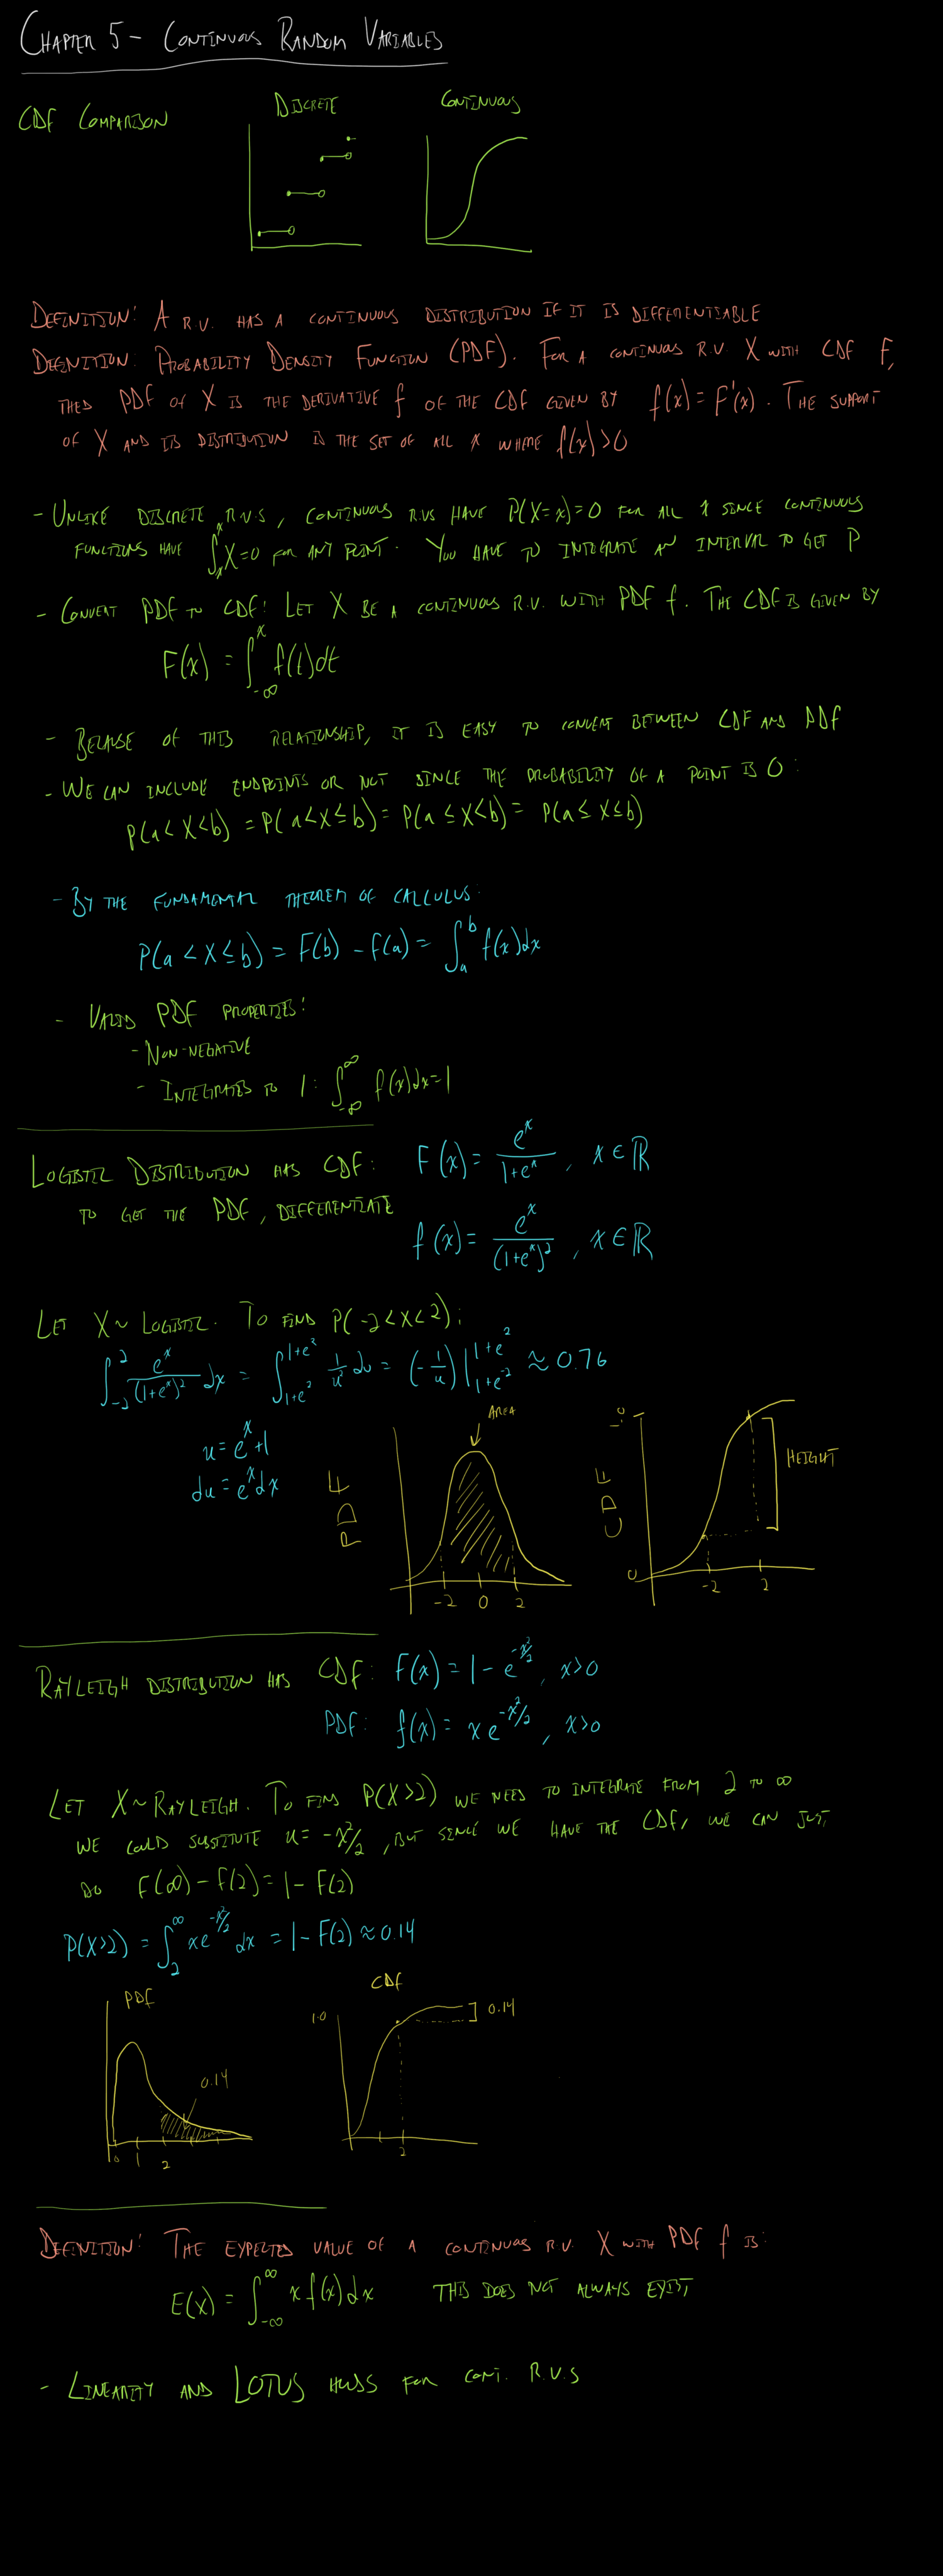 CHAPTER 5 - CONTINUOUS RANDOM VARIABLES
CDF COMPARISON
DISCRETE
CONTINUOUS
DEFINITION: A R.V. HAS A CONTINUOUS DISTRIBUTION IF IT IS DIFFERENTIABLE
DEFINITION: PROBABILITY DENSITY FUNCTION (PDF). FOR A CONTINUOUS R.V. X WITH CDF F,
THE PDF OF X IS THE DERIVATIVE f OF THE CDF GIVEN BY f(x) = F'(x). THE SUPPORT
OF X AND ITS DISTRIBUTION IS THE SET OF ALL x WHERE f(x)>0
- UNLIKE DISCRETE R.V.S, CONTINUOUS R.V.S HAVE P(X=x)=0 FOR ALL x SINCE CONTINUOUS
FUNCTIONS HAVE ∫_x^x X=0 FOR ANY POINT. YOU HAVE TO INTEGRATE AN INTERVAL TO GET P
- CONVERT PDF TO CDF: LET X BE A CONTINUOUS R.V. WITH PDF f. THE CDF IS GIVEN BY
F(x) = ∫_{-∞}^x f(t)dt
- BECAUSE OF THIS RELATIONSHIP, IT IS EASY TO CONVERT BETWEEN CDF AND PDF
- WE CAN INCLUDE ENDPOINTS OR NOT SINCE THE PROBABILITY OF A POINT IS 0:
P(a<X<b) = P(a<X≤b) = P(a≤X<b) = P(a≤X≤b)
- BY THE FUNDAMENTAL THEOREM OF CALCULUS:
P(a<X≤b) = F(b) - F(a) = ∫_a^b f(x)dx
- VALID PDF PROPERTIES:
- NON-NEGATIVE
- INTEGRATES TO 1: ∫_{-∞}^∞ f(x)dx=1
LOGISTIC DISTRIBUTION HAS CDF: F(x) = e^x/(1+e^x), x ∈ ℝ
TO GET THE PDF, DIFFERENTIATE
f(x) = e^x/(1+e^x)^2, x ∈ ℝ
LET X ~ LOGISTIC. TO FIND P(-2<X<2):
∫_{-2}^2 e^x/(1+e^x)^2 dx = ∫_{1+e^2}^{1+e^2} 1/u^2 du = (-1/u)|_{1+e^-2}^{1+e^2} ≈ 0.76
u = e^x+1
du = e^x dx
PDF
AREA
-2 0 2
CDF
1.0
HEIGHT
0
-2 2
RAYLEIGH DISTRIBUTION HAS CDF: F(x) = 1 - e^{-x^2/2}, x>0
PDF: f(x) = xe^{-x^2/2}, x>0
LET X~RAYLEIGH. TO FIND P(X>2) WE NEED TO INTEGRATE FROM 2 TO ∞
WE COULD SUBSTITUTE u = -x^2/2, BUT SINCE WE HAVE THE CDF, WE CAN JUST
DO F(∞) - F(2) = 1 - F(2)
P(X>2) = ∫_2^∞ xe^{-x^2/2} dx = 1-F(2) ≈ 0.14
PDF
0.14
0 1 2
CDF
1.0
0.14
2
DEFINITION: THE EXPECTED VALUE OF A CONTINUOUS R.V. X WITH PDF f IS:
E(X) = ∫_{-∞}^∞ x f(x)dx THIS DOES NOT ALWAYS EXIST
- LINEARITY AND LOTUS HOLDS FOR CONT. R.V.S